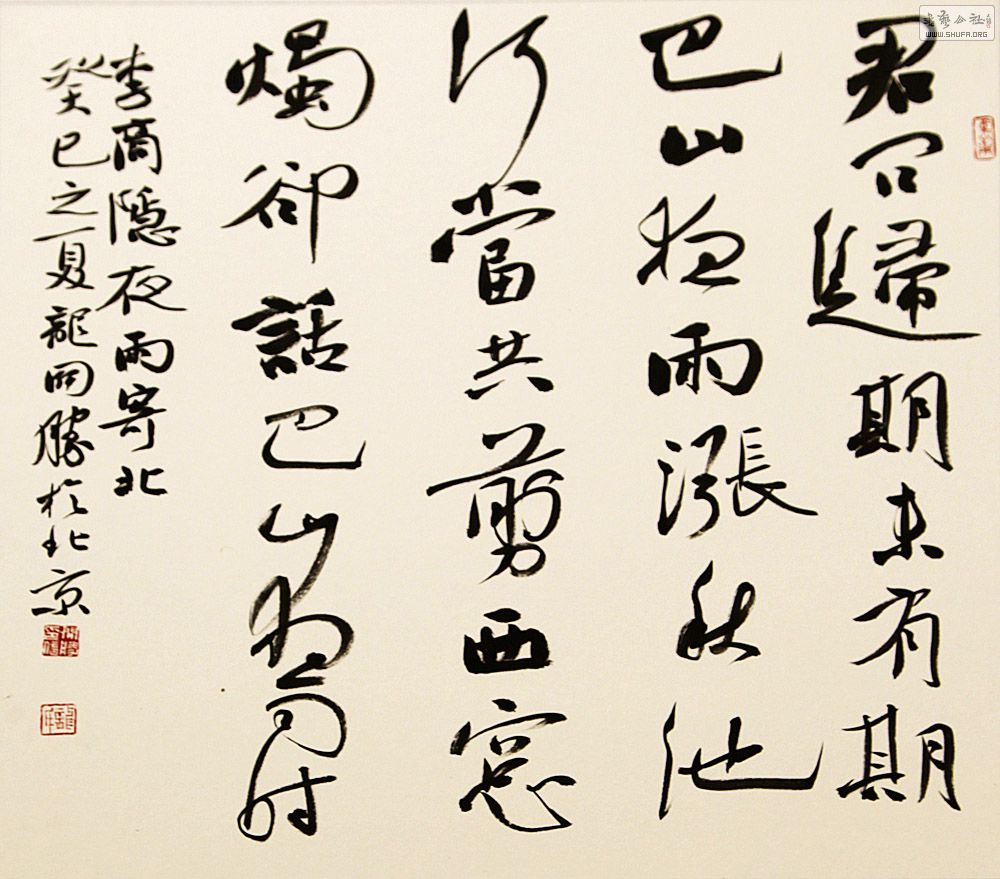 君問歸期未有期
巴山夜雨漲秋池
何當共剪西窓
燭卻話巴山夜雨时
李商隱夜雨寄北
癸巳之夏龍開勝於北京
书艺公社
WWW.SHUFA.ORG